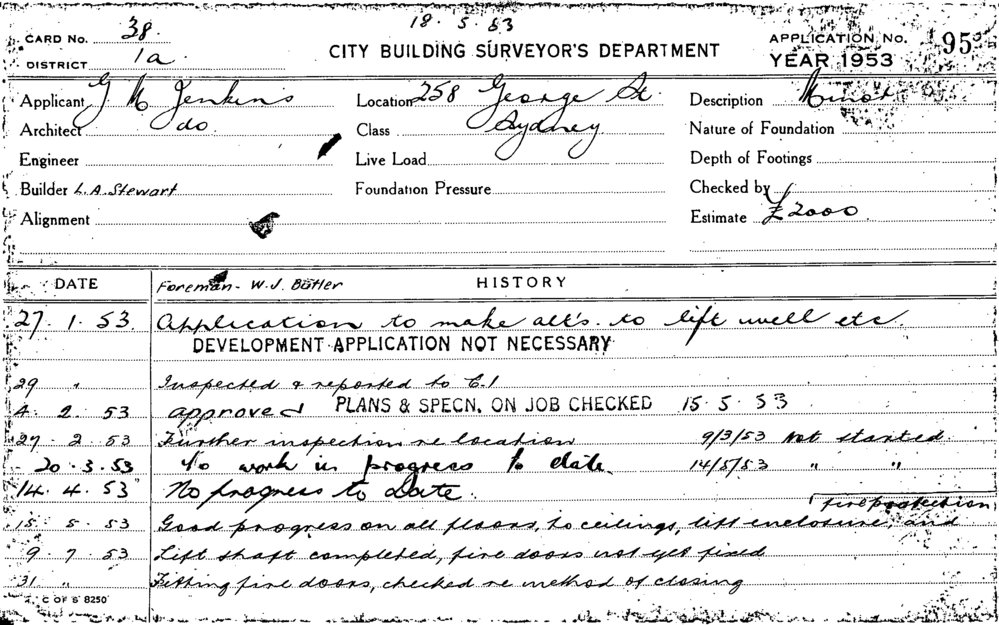 18. 5. 53
CARD No. 38.
DISTRICT 1a
CITY BUILDING SURVEYOR'S DEPARTMENT
APPLICATION No. 95
YEAR 1953
Applicant G M Jenkins
Location 258 George St.
Description Minor
Architect do.
Class Sydney
Nature of Foundation
Engineer
Live Load
Depth of Footings
Builder L.A. Stewart
Foundation Pressure
Checked by
Alignment
Estimate £2000
DATE
Foreman - W.J. Butler
HISTORY
27. 1. 53. Application to make alt's. to lift well etc.
DEVELOPMENT APPLICATION NOT NECESSARY
29 " Inspected & reported to C.I
4. 2. 53 approved PLANS & SPECN. ON JOB CHECKED 15. 5. 53
27. 2. 53 Further inspection re location 9/3/53 Not started.
20. 3. 53 No work in progress to date. 14/5/53 " "
14. 4. 53 No progress to Date.
fire protection
15. 5. 53 Good progress on all floors, to ceilings, lift enclosure and
9. 7. 53 Lift shaft completed, fire doors not yet fixed
31 " Fitting fire doors, checked re method of closing
C OF S 8250